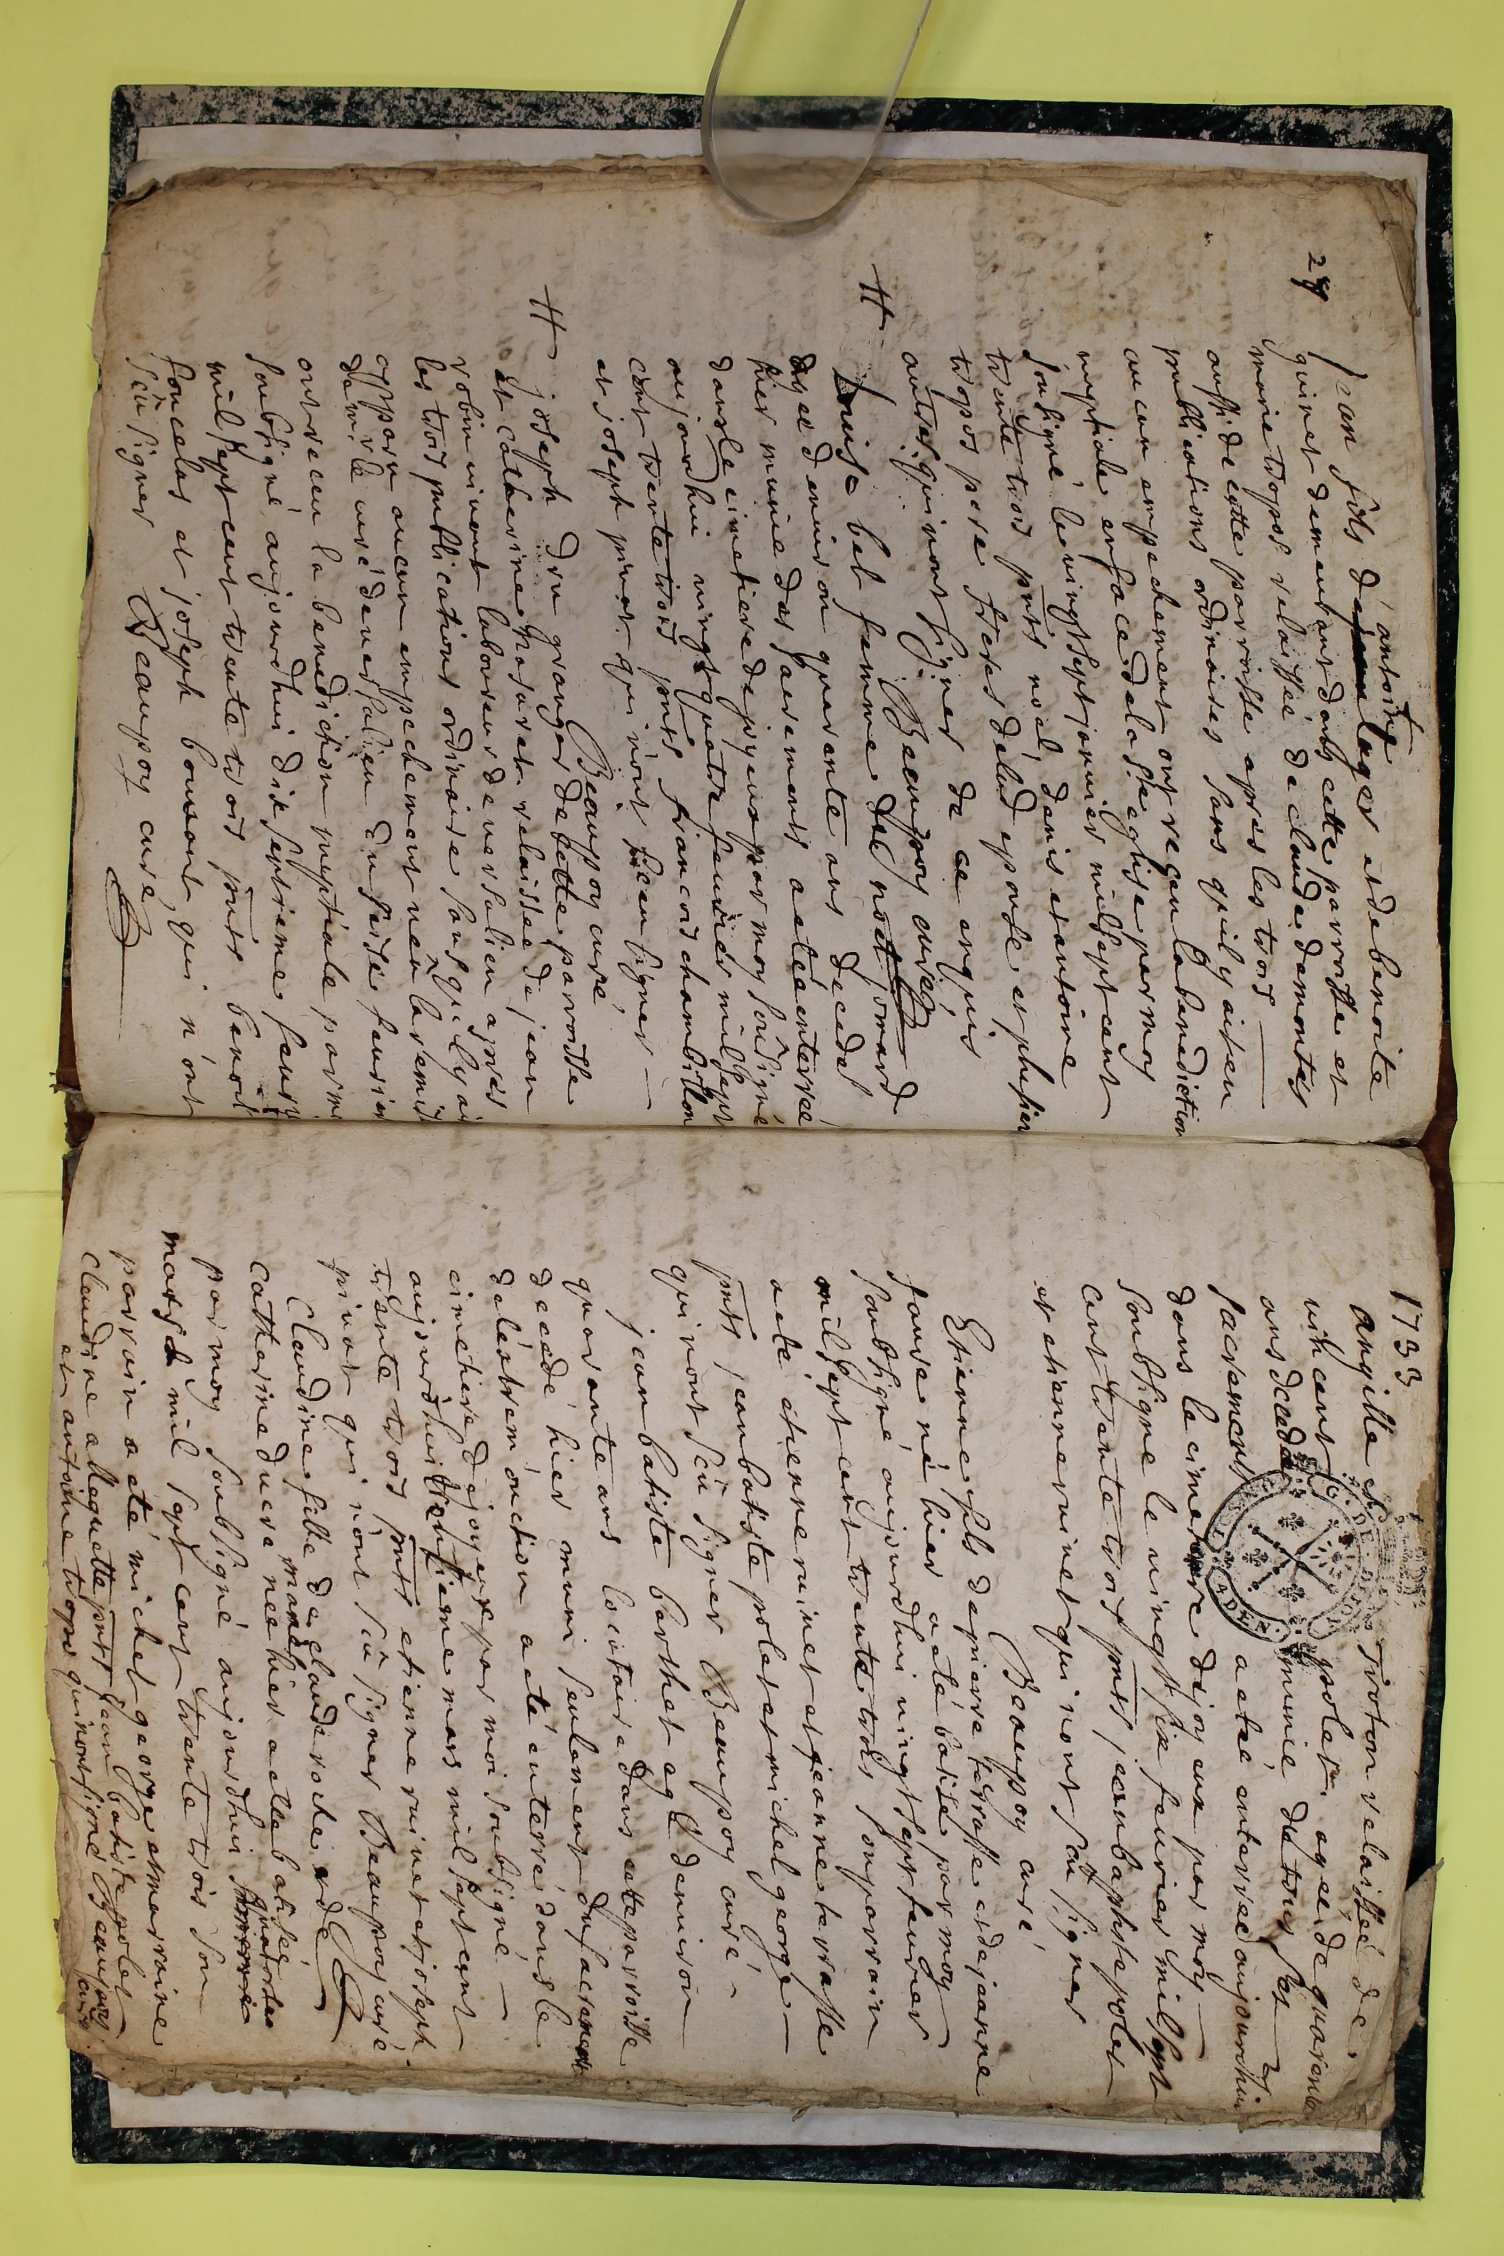 24
antoine
jean fils de lager et de benoite
guinet demeurant dans cette parroisse et
marie tropos relaissée de claude demontes
aussi de cette parroisse apres les trois
publications ordinaires sans quil y ait eu
aucun empechement ont reçeu la benediction
nuptiale en face de la ste eglise par moy
soussigné le vingt sept janvier mil sept cent
trente trois pnts noel denis et antoine
tropos pere freres de lad epouse et plusieurs
autres qui nont signer de ce enquis
Beaupoy curé
H Louise bel femme de noel jomard
agée d'environ quarente ans decedee
hier munie des sacrements a été enterrée
dans le cimetiere de joyeux par moy sousigné
aujourdhui vingt quatre feuvrier mil sept
cent trente trois pnts francois chambillon
et joseph pivot qui n'ont sceu signer
Beaupoy curé
H joseph dru granger de cette parroisse
et catherine relaissée de jean
robin vivant laboureur de versalieu apres
les trois publications ordinaire sans qu'il y ai
apparu aucun empechement veu la remise
de mr le curé de versalieu du seise feuvrier
ont receu la benediction nuptiale par moi
soubsigné aujourdhui dix septieme feuvr
mil sept cent trente trois pnts benoit
foncelas et joseph bonsant qui n'ont
sceu signer Beaupoy curé
1733
angille trotton relaissée de
vincent polet agee de quarente
ans decedée munie de tous ses
sacrements a eté enterrée aujourdhui
dans le cimetiere de joyeux par moy
soubsigne le vingt six feuvrier mil sept
cent trente trois pnts jean baptiste polet
et etienne ruinet qui nont sceu signer
Beaupoy curé
Etienne fils de pierre terrasse et de jeanne
favre né hier a eté batisé par moy
soubsigné aujourdhui vingt sept feuvrier
mil sept cent trente trois son parrain
a eté etienne ruinet et jeanne terrasse
pnts jean batiste polet et michel george
qui n'ont sceu signer Beaupoy curé
jean batiste berthet agé d'environ
quarante ans locataire dans cette parroisse
decedé hier muni seulement du sacrement
de l'extrem onction a eté enterré dans le
cimetiere de joyeux par moi soubsigné
aujourdhui huitieme mars mil sept cent
trente trois pnts etienne ruinet et joseph
pivot qui n'ont sceu signer Beaupoy curé
Claudine fille de claude roche et de
catherine ducre née hier a eté batisée
par moy soubsigné aujourdhui quatorse
mars mil sept cent trente trois son
parrain a eté michel george et marraine
claudine allequette pnts jean batiste polet
et antoine tropos qui n'ont signé Beaupoy
curé